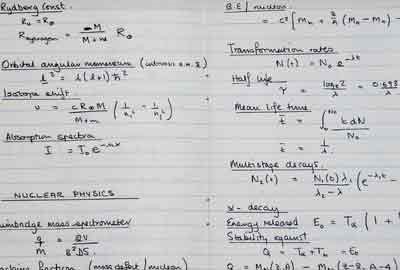 Rydberg Const.
R₀ = R∞
R_hydrogen = M / (M + m) R∞
Orbital angular momentum
l² = l(l+1) ħ²
Isotope shift.
υ = cR∞M / (M+m) (1/n₁² - 1/n₂²)
Absorption spectra
I = I₀ e
NUCLEAR PHYSICS
mass spectrometer
q/M = 2V / B²DS
fraction (mass defect / nucleon)
B.E / nucleon
= c² [ Mn + Z/A (Mn - Mn) -
Transformation rates
N(t) = N₀ e^-λt
Half life
τ = loge2 / λ = 0.693 /
Mean life time
t̄ = ∫ t dN / N₀
t̄ = 1/λ
Multistage decays.
N₂(t) = N₁(0) λ₁ / (λ₂ - λ) (e^-λ₁t -
α - decay
Energy released E₀ = Tα ( 1 +
Stability against
Q = Tα + Tb = E₀
Q = Mn(Z,A) - Mn(Z-2, A-4)